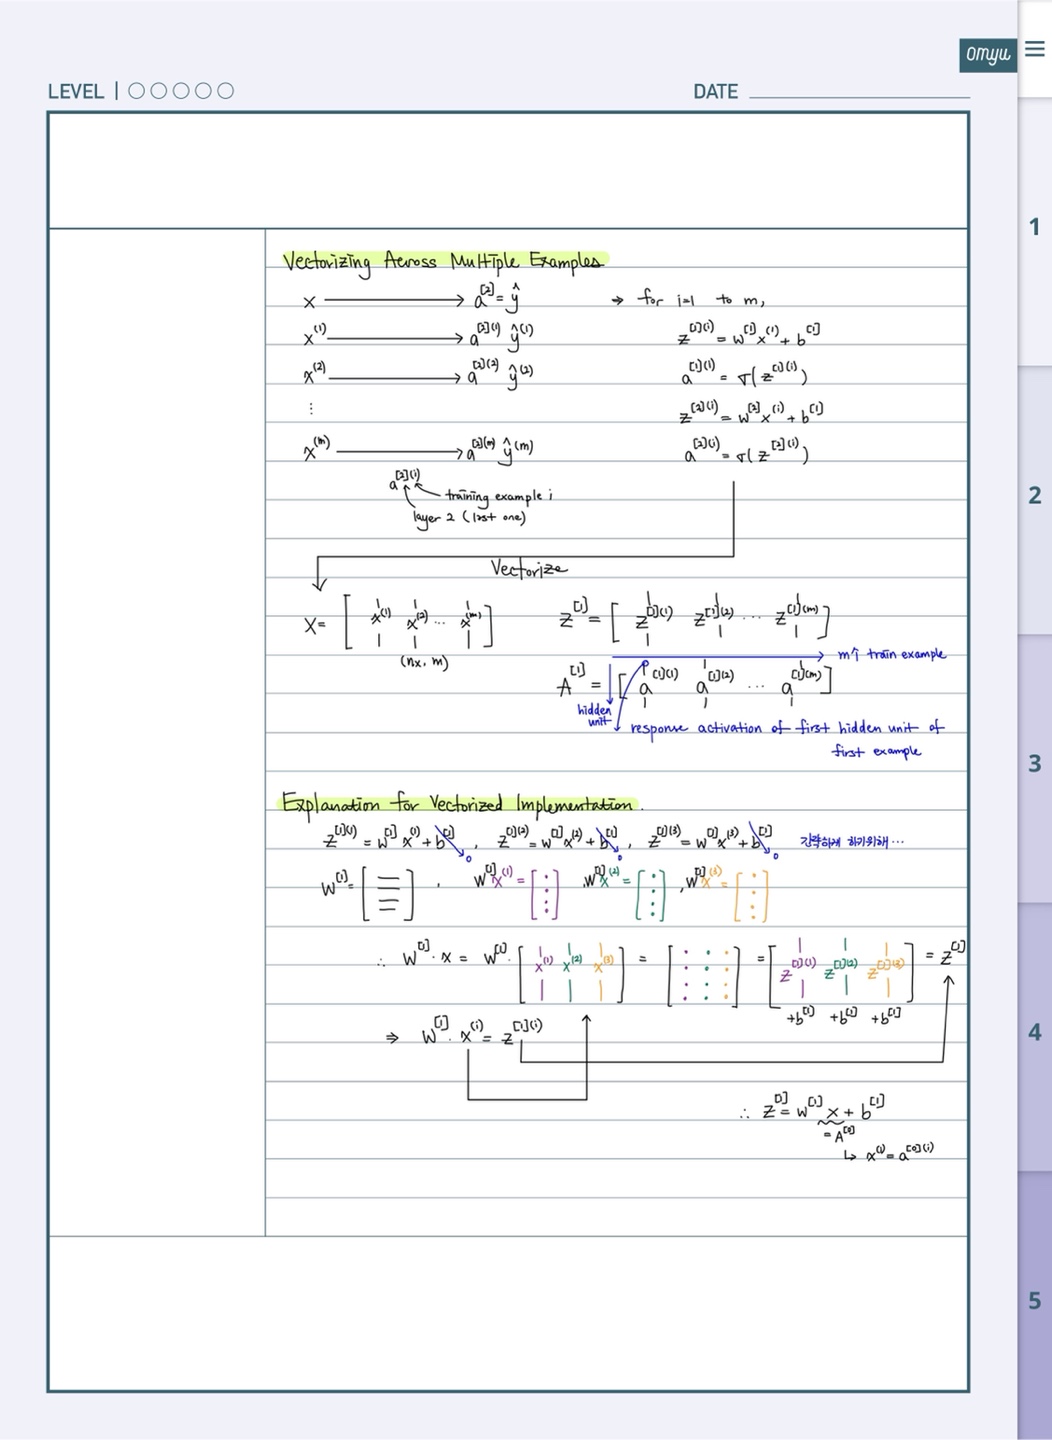 omyu
LEVEL | ○○○○○
DATE
1
2
3
4
5
Vectorizing Across Multiple Examples
x → a^[2] = ŷ
x^(1) → a^[2](1) ŷ^(1)
x^(2) → a^[2](2) ŷ^(2)
⋮
x^(m) → a^[2](m) ŷ^(m)
a^[2](i)
training example i
layer 2 (last one)
→ for i=1 to m,
z^[1](i) = w^[1] x^(i) + b^[1]
a^[1](i) = σ(z^[1](i))
z^[2](i) = w^[2] x^(i) + b^[1]
a^[2](i) = σ(z^[2](i))
Vectorize
X = [ x^(1) x^(2) ... x^(m) ]
(nx, m)
Z^[1] = [ z^[1](1) z^[1](2) ... z^[1](m) ]
m개 train example
A^[1] = [ a^[1](1) a^[1](2) ... a^[1](m) ]
hidden
unit
response activation of first hidden unit of
first example
Explanation for Vectorized Implementation.
z^[1](1) = w^[1] x^(1) + b^[1] 0, z^[1](2) = w^[1] x^(2) + b^[1] 0, z^[1](3) = w^[1] x^(3) + b^[1] 0 간략하게 하기위해...
W^[1] = [ ] , W^[1] x^(1) = [ ⋮ ] , W^[1] x^(2) = [ ⋮ ] , W^[1] x^(3) = [ ⋮ ]
∴ W^[1] · x = W^[1] · [ x^(1) x^(2) x^(3) ] = [ ⋮ ⋮ ⋮ ] = [ z^[1](1) z^[1](2) z^[1](3) ] = z^[1]
+b^[1] +b^[1] +b^[1]
⇒ W^[1] · x^(i) = z^[1](i)
∴ Z^[1] = w^[1] X + b^[1]
= A^[0]
↳ x^(i) = a^[0](i)